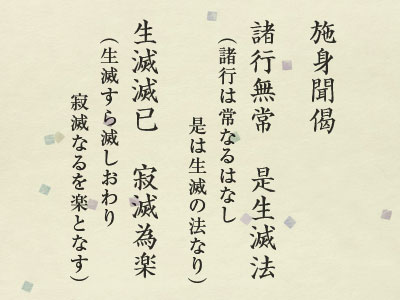 施身聞偈
諸行無常　是生滅法
（諸行は常なるはなし
是は生滅の法なり）
生滅滅已　寂滅為楽
（生滅すら滅しおわり
寂滅なるを楽となす）